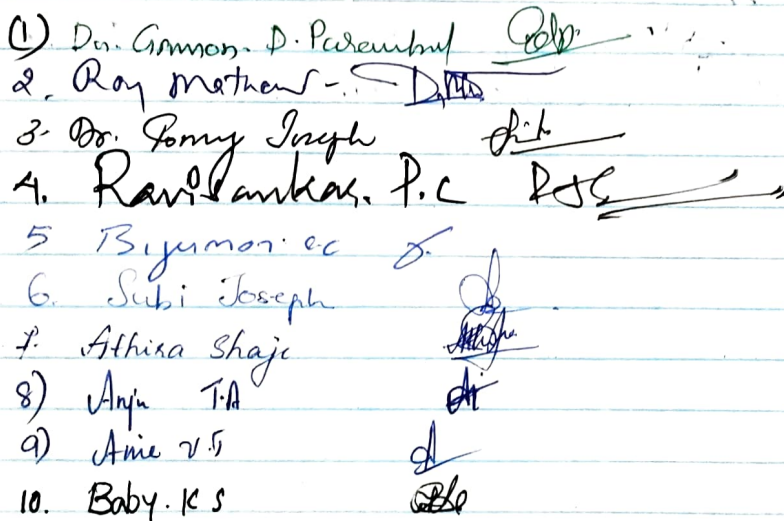 (1) Dr. Gomon. D. Parembul
2. Roy Mathew
3. Dr. Tomy Joseph
4. Ravisankar. P.C
5 Bijumon. e.c
6. Subi Joseph
7. Athira Shaji
8) Anju T.A
9) Amie V.J
10. Baby. K S